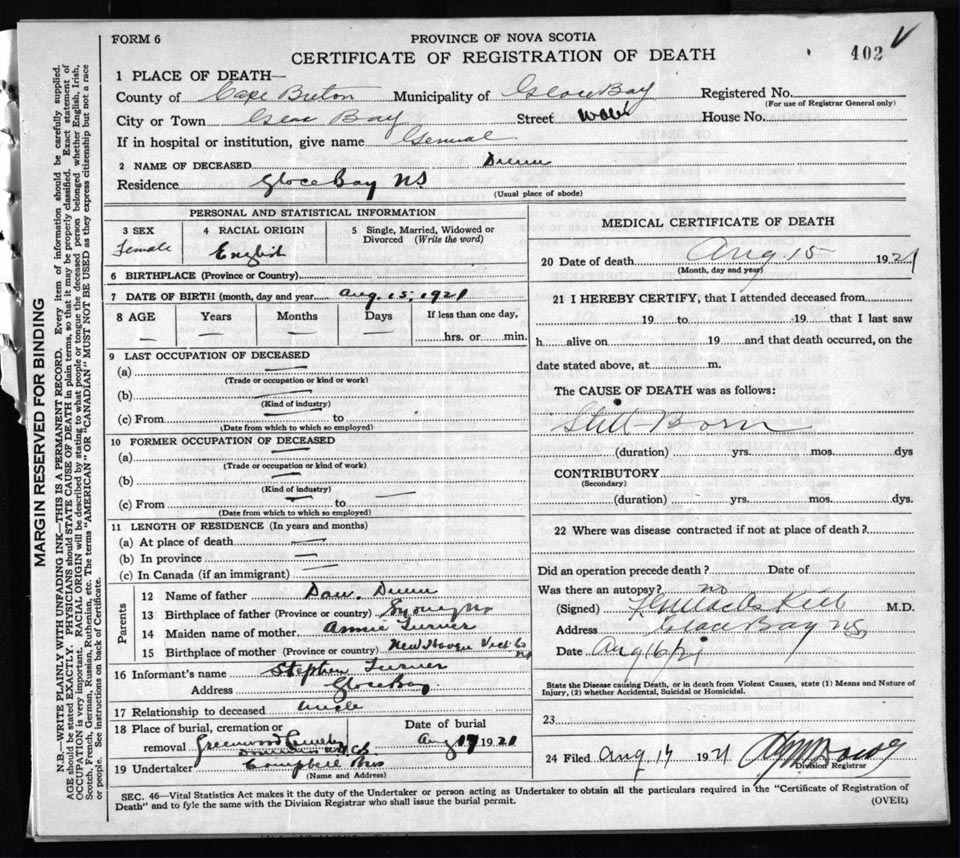 FORM 6
PROVINCE OF NOVA SCOTIA
CERTIFICATE OF REGISTRATION OF DEATH
402
1 PLACE OF DEATH—
County of Cape Breton Municipality of Glace Bay Registered No.
(For use of Registrar General only)
City or Town Glace Bay Street House No.
If in hospital or institution, give name General
2 NAME OF DECEASED Dunn
Residence Glace Bay NS
(Usual place of abode)
PERSONAL AND STATISTICAL INFORMATION
3 SEX Female
4 RACIAL ORIGIN English
5 Single, Married, Widowed or Divorced (Write the word)
6 BIRTHPLACE (Province or Country)
7 DATE OF BIRTH (month, day and year Aug. 15, 1921
8 AGE Years Months Days If less than one day,
— — — — hrs. or min.
9 LAST OCCUPATION OF DECEASED
(a)
(Trade or occupation or kind or work)
(b)
(Kind of industry)
(c) From to
(Date from which to which so employed)
10 FORMER OCCUPATION OF DECEASED
(a)
(Trade or occupation or kind or work)
(b)
(Kind of industry)
(c) From to
(Date from which to which so employed)
11 LENGTH OF RESIDENCE (In years and months)
(a) At place of death
(b) In province
(c) In Canada (if an immigrant)
Parents
12 Name of father Dunn
13 Birthplace of father (Province or country)
14 Maiden name of mother Annie Turner
15 Birthplace of mother (Province or country) New Haven Vict Co
16 Informant's name Stephen Turner
Address Glace Bay
17 Relationship to deceased Uncle
18 Place of burial, cremation or removal Greenwood
Date of burial Aug 17 1921
19 Undertaker Campbell Bros
(Name and Address)
MEDICAL CERTIFICATE OF DEATH
20 Date of death Aug 15 1921
(Month, day and year)
21 I HEREBY CERTIFY, that I attended deceased from
19 to 19 that I last saw
h alive on 19 and that death occurred, on the
date stated above, at m.
The CAUSE OF DEATH was as follows:
Still-Born
(duration) yrs. mos. dys
CONTRIBUTORY
(Secondary)
(duration) yrs. mos. dys.
22 Where was disease contracted if not at place of death?
Did an operation precede death? Date of
Was there an autopsy? no
(Signed) M.D.
Address Glace Bay NS
Date Aug 16/21
State the Disease causing Death, or in death from Violent Causes, state (1) Means and Nature of
Injury, (2) whether Accidental, Suicidal or Homicidal.
23
24 Filed Aug 17 1921
Division Registrar
SEC. 46—Vital Statistics Act makes it the duty of the Undertaker or person acting as Undertaker to obtain all the particulars required in the "Certificate of Registration of
Death" and to fyle the same with the Division Registrar who shall issue the burial permit.
(OVER)
MARGIN RESERVED FOR BINDING
N.B.—WRITE PLAINLY WITH UNFADING INK—THIS IS A PERMANENT RECORD. Every item of information should be carefully supplied.
AGE should be stated EXACTLY. PHYSICIANS should STATE CAUSE OF DEATH in plain terms, so that it may be properly classified. Exact statement of
OCCUPATION is very important. RACIAL ORIGIN will be described by stating to what people or tongue the deceased person belonged, whether English, Irish,
Scotch, French, German, Russian, Ruthenian, etc. The terms "AMERICAN" OR "CANADIAN" MUST NOT BE USED as they express citizenship but not a race
or people. See instructions on back of Certificate.